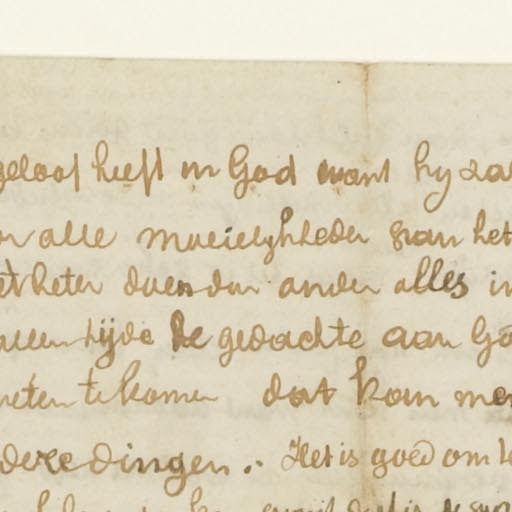 geloof heeft in God want hy zal
alle moeielykheden van het
beter doen dan ander alles in
allen tijde de gedachte aan Go
weten te komen dat kan men
dere dingen. Het is goed om te